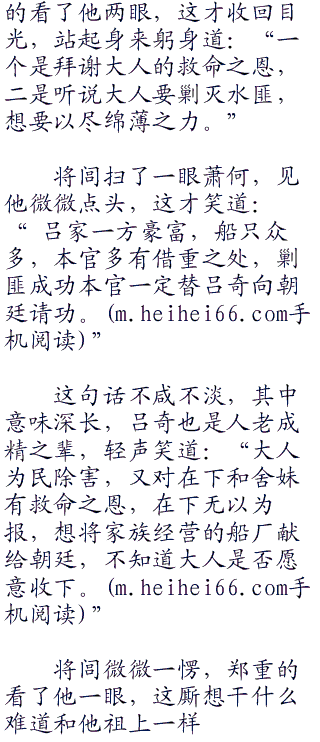 的看了他两眼，这才收回目
光，站起身来躬身道：“一
个是拜谢大人的救命之恩，
二是听说大人要剿灭水匪，
想要以尽绵薄之力。”
将闾扫了一眼萧何，见
他微微点头，这才笑道：
“ 吕家一方豪富，船只众
多，本官多有借重之处，剿
匪成功本官一定替吕奇向朝
廷请功。(m.heihei66.com手
机阅读)”
这句话不咸不淡，其中
意味深长，吕奇也是人老成
精之辈，轻声笑道：“大人
为民除害，又对在下和舍妹
有救命之恩，在下无以为
报，想将家族经营的船厂献
给朝廷，不知道大人是否愿
意收下。(m.heihei66.com手
机阅读)”
将闾微微一愣，郑重的
看了他一眼，这厮想干什么
难道和他祖上一样